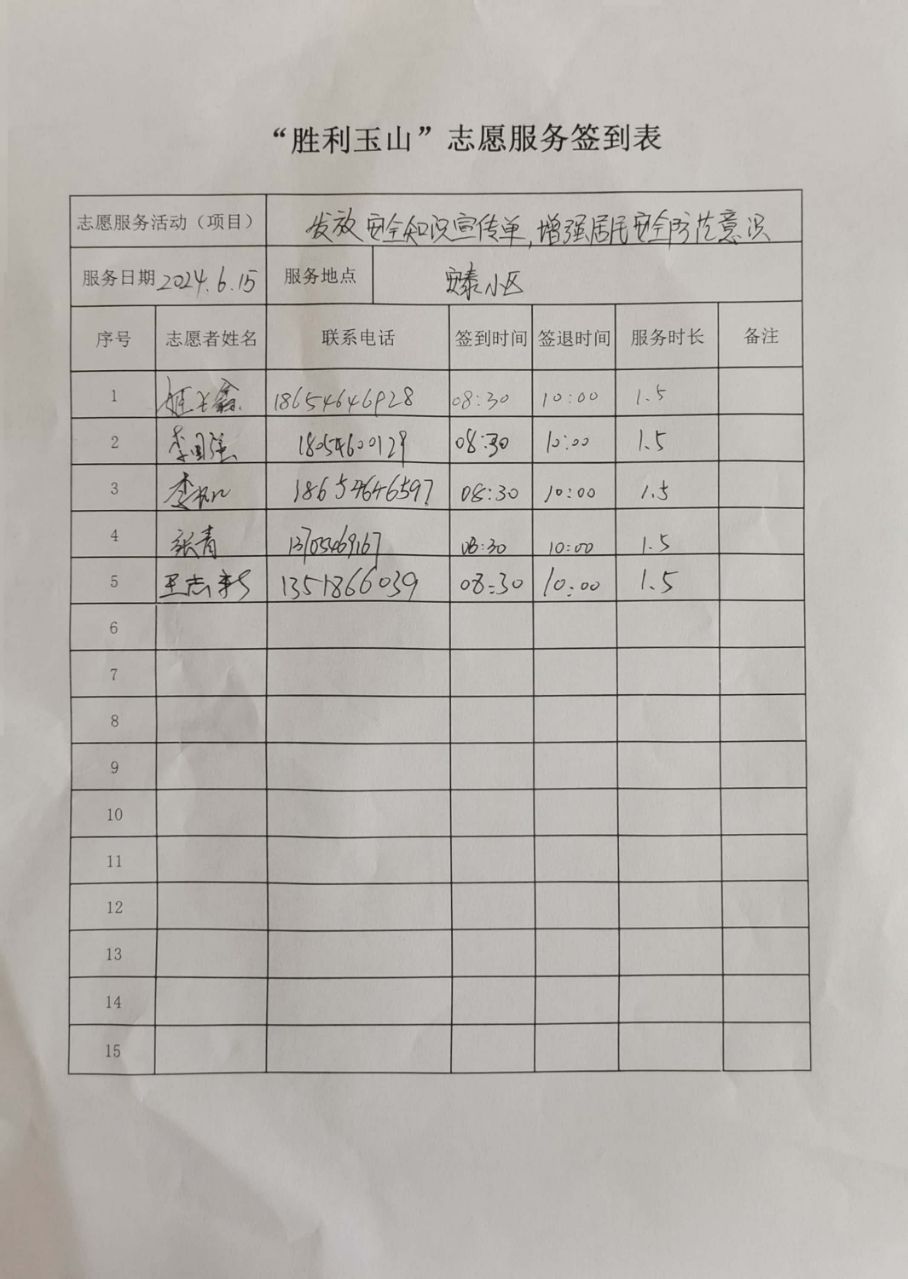 “胜利玉山”志愿服务签到表
志愿服务活动（项目） 发放安全知识宣传单,增强居民安全防范意识
服务日期 2024.6.15 服务地点 安泰小区
序号 志愿者姓名 联系电话 签到时间 签退时间 服务时长 备注
1 08:30 10:00 1.5
2 李国强 08:30 10:00 1.5
3 18654646597 08:30 10:00 1.5
4 张青 13705469167 08:30 10:00 1.5
5 王志新 08:30 10:00 1.5
6
7
8
9
10
11
12
13
14
15